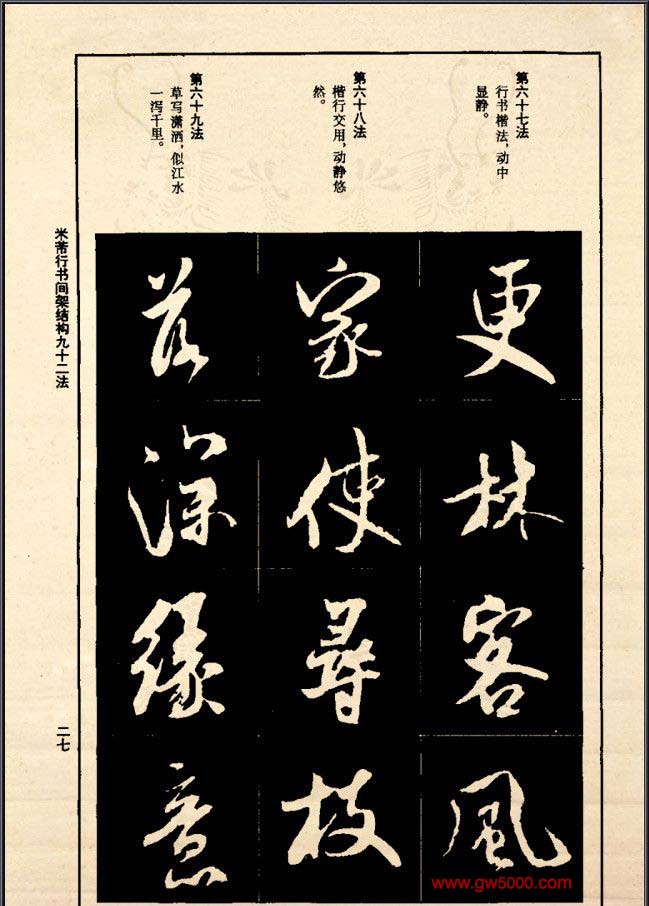 第六十七法
行书楷法，动中
显静。
更
林
客
風
第六十八法
楷行交用，动静悠
然。
家
使
尋
枝
第六十九法
草写潇洒，似江水
一泻千里。
落
深
緣
意
米芾行书间架结构九十二法
二七
www.gw5000.com